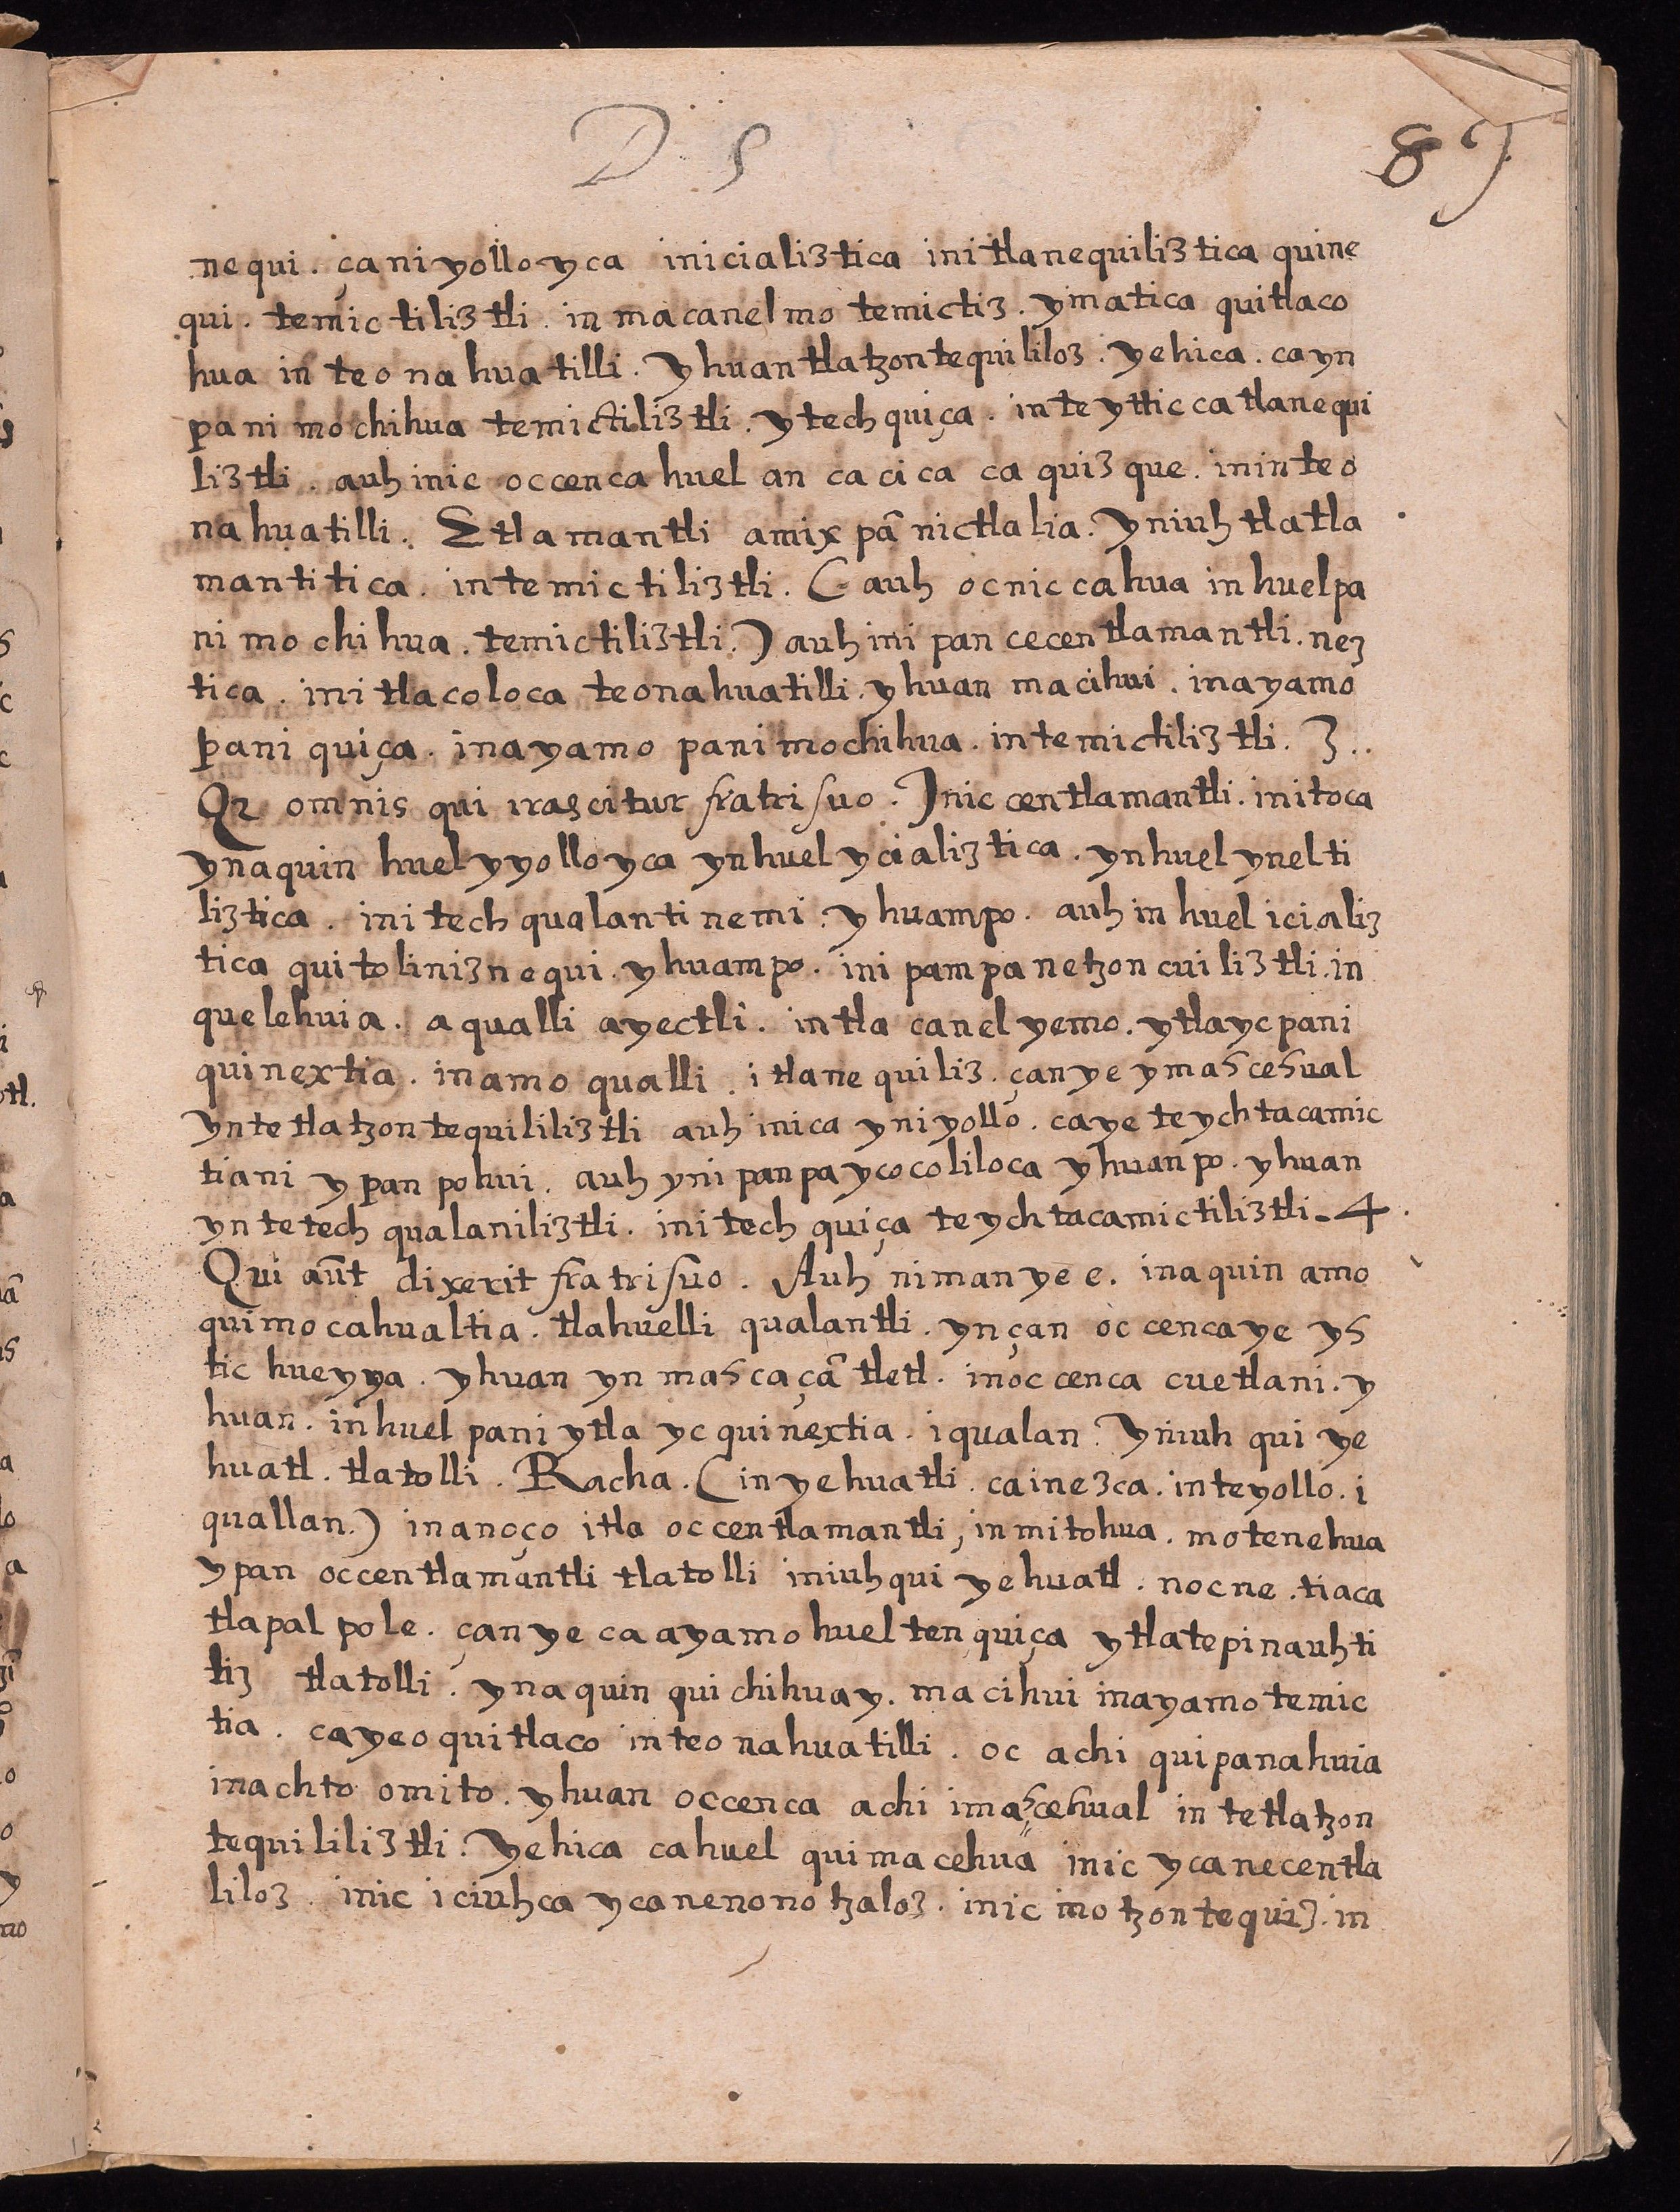 D 5
87
nequi. çaniyolloyca inicializtica initlanequiliztica quine
qui. temictiliztli. in macanelmo temictiz. ymatica quitlaco
hua in teonahuatilli. yhuan tlatzontequililoz. yehica. cayn
pani mochihua temictiliztli. ytech quiça. inteyttic ca tlanequi
liztli. auh inic occenca huel an cacica ca quizque. inin teo
nahuatilli. Etlamantli amixpã nictlalia. yniuh tlatla
mantitica. intemictiliztli. (auh oc nic cahua in huelpa
ni mochihua. temictiliztli.) auh ini pan cecentlamantli. nez
tica. initlacoloca teonahuatilli. yhuan macihui. inayamo
pani quiça. inayamo pani mochihua. intemictiliztli. 3..
Qz omnis qui irascitur fratri suo. Inic centlamantli. initoca
ynaquin huel yyolloyca ynhuel ycializtica. ynhuel ynelti
liztica. initech qualantinemi. yhuampo. auh in huel icializ
tica quitoliniznequi. yhuampo. ini pampa netzoncuiliztli. in
quelehuia. aqualli ayectli. intla canel yemo. ytla yc pani
quinextia. inamo qualli. itlanequiliz. çan ye ymascesual
yntetlatzontequililiztli auh inica yniyollo. caye teychtacamic
tiani ypan pohui. auh yni panpa ycocoliloca yhuanpo. yhuan
yn tetech qualaniliztli. initech quiça teychtacamictiliztli. 4.
Qui aũt dixerit fratri suo. Auh nimanyee. inaquin amo
quimocahualtia. tlahuelli qualantli. ynçan oc cencaye ys
tic hueyya. yhuan yn mascaçã tletl. inoc cenca cuetlani. y
huan. inhuel pani ytla yc quinextia. iqualan. yniuh qui ye
huatl. tlatolli. Racha. (in yehuatli. ca inezca. inteyollo. i
quallan.) inanoço itla occentlamantli, in mitohua. motenehua
ypan occentlamantli tlatolli iniuhqui yehuatl. nocne. tiaca
tlapalpole. çanye ca ayamo huel tenquiça ytlatepinauhti
liz tlatolli. ynaquin quichihuay. macihui inayamo temic
tia. cayeoquitlaco inteonahuatilli. oc achi quipanahuia
inachto omito. yhuan occenca achi imascesual in tetlatzon
tequililiztli. yehica cahuel quimacehua inic ycanecentla
liloz. inic iciuhca ycanenonotzaloz. inic motzontequiz. in